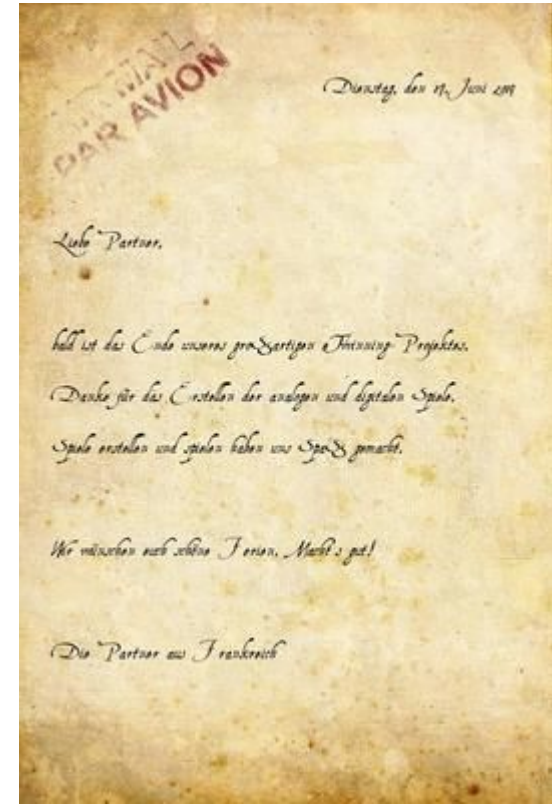 PAR AVION
Dienstag, den Juni
Liebe Partner,
bald ist das Ende unseres großartigen eTwinning-Projektes.
Danke für das Erstellen der analogen und digitalen Spiele.
Spiele erstellen und spielen haben uns Spaß gemacht.
Wir wünschen euch schöne Ferien. Macht's gut!
Die Partner aus Frankreich